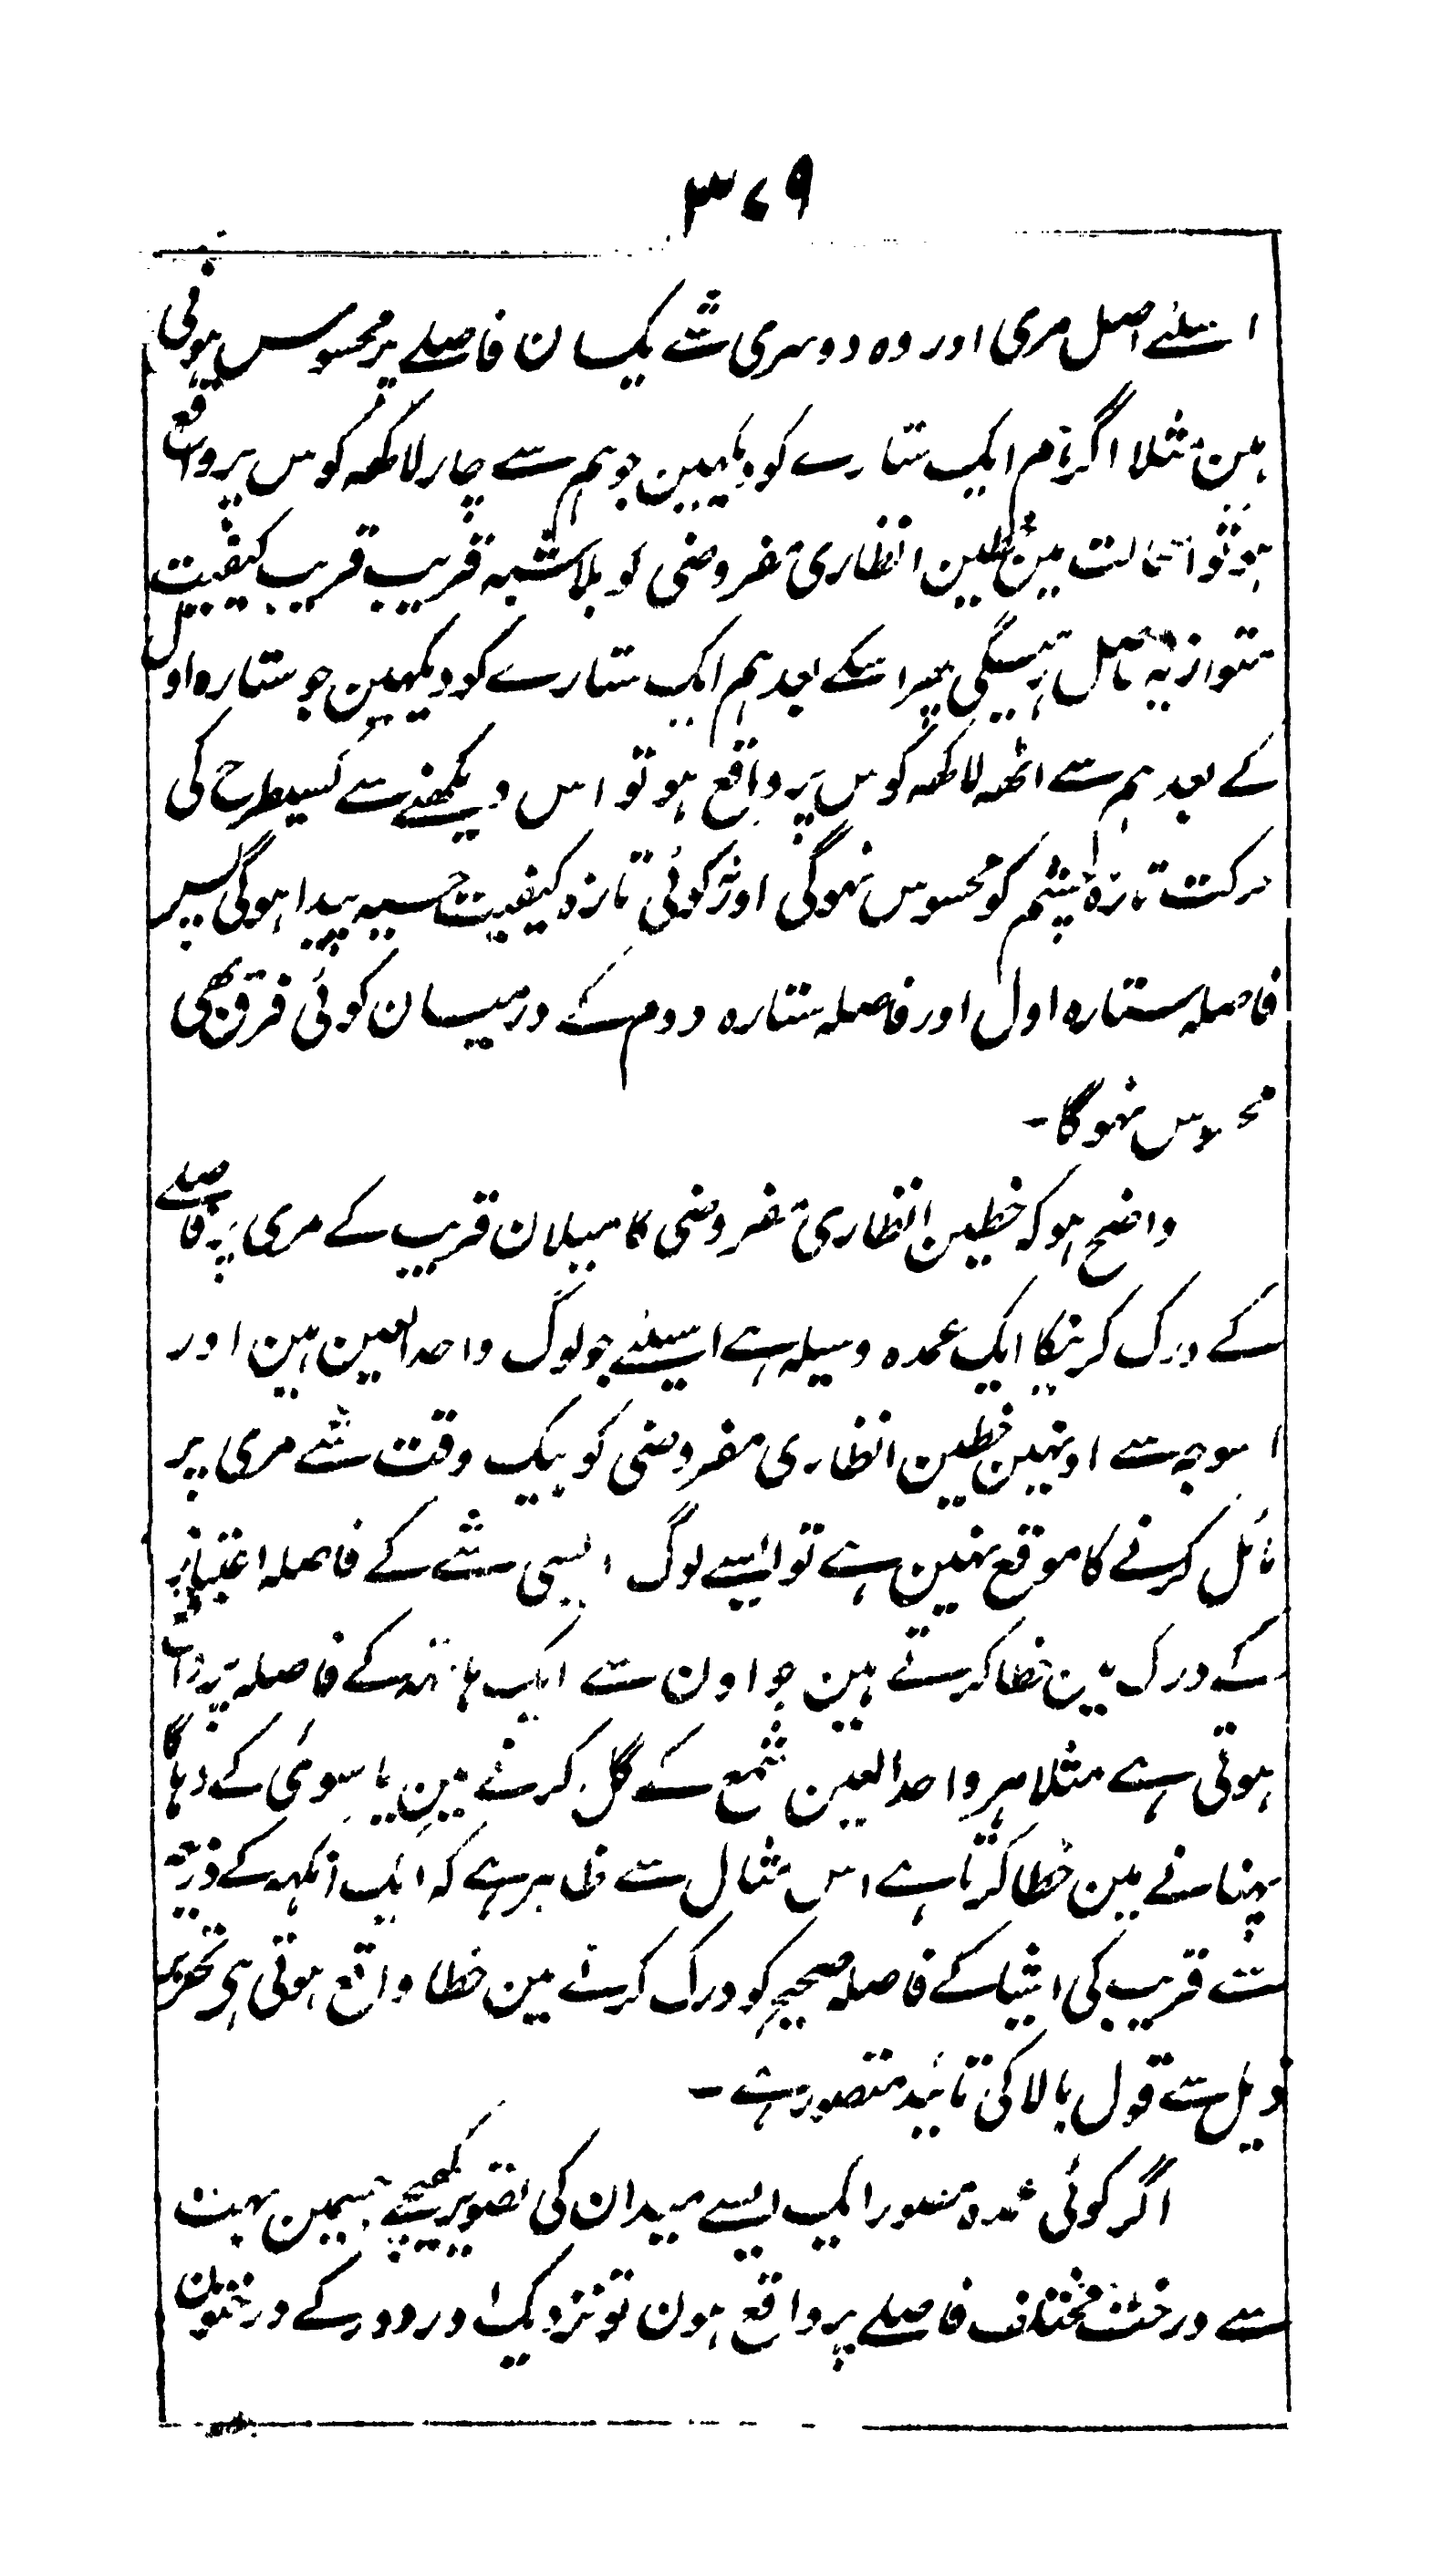 ۳۷۹
اسلئے اصل مری اور وہ دوسری شے یکسان فاصلے پر محسوس ہوتی
ہین مثلا اگر ہم ایک ستارے کو دیکھین جو ہم سے چار لاکھہ کوس پر واقع
ہو تو اسحالت مین خطین انظاری مفروضی کو بلا شبہ قریب قریب کیفیت
متوازیہ حاصل رہیگی پھر اسکے بعد ہم ایک ستارے کو دیکھین جو ستارہ اول
کے بعد ہم سے اٹھہ لاکھہ کوس پر واقع ہو تو اس دیکھنے سے کسیطرح کی
حرکت تازہ چشم کو محسوس نہوگی اور نہ کوئی تازہ کیفیت حسیہ پیدا ہوگی پس
فاصلہ ستارہ اول اور فاصلہ ستارہ دوم کے درمیسان کوئی فرق بھی
محسوس نہوگا۔
واضح ہو کہ خطین انظاری مفروضی کا میلان قریب کے مری پر فاصلے
کے درک کرنیکا ایک عمدہ وسیلہ ہے اسیلئے جو لوگ واحد العین ہین اور
اسوجہ سے اونہین خطین انظاری مفروضی کو بیک وقت شے مری پر
مائل کرنے کا موقع نہین ہے تو ایسے لوگ ایسی شے کے فاصلہ امتیاز
کے درک مین خطا کرتے ہین جو اون سے ایک ہاتھہ کے فاصلہ پر واقع
ہوتی ہے مثلا ہر واحد العین شمع کے گل کرنے مین یا سوئی کے دہاگا
پہنانے مین خطا کرتا ہے اس مثال سے ظاہر ہے کہ ایک انکہہ کے ذریعہ
سے قریب کی اشیا کے فاصلہ صحیح کو درک کرنے مین خطا واقع ہوتی ہی تحریر
ذیل سے قول بالا کی تائید متصور ہے۔
اگر کوئی عمدہ مصور ایک ایسے میدان کی تصویر کھینچے جسمین بہت
سے درخت مختلف فاصلے پر واقع ہون تو نزدیک اور دور کے درختون